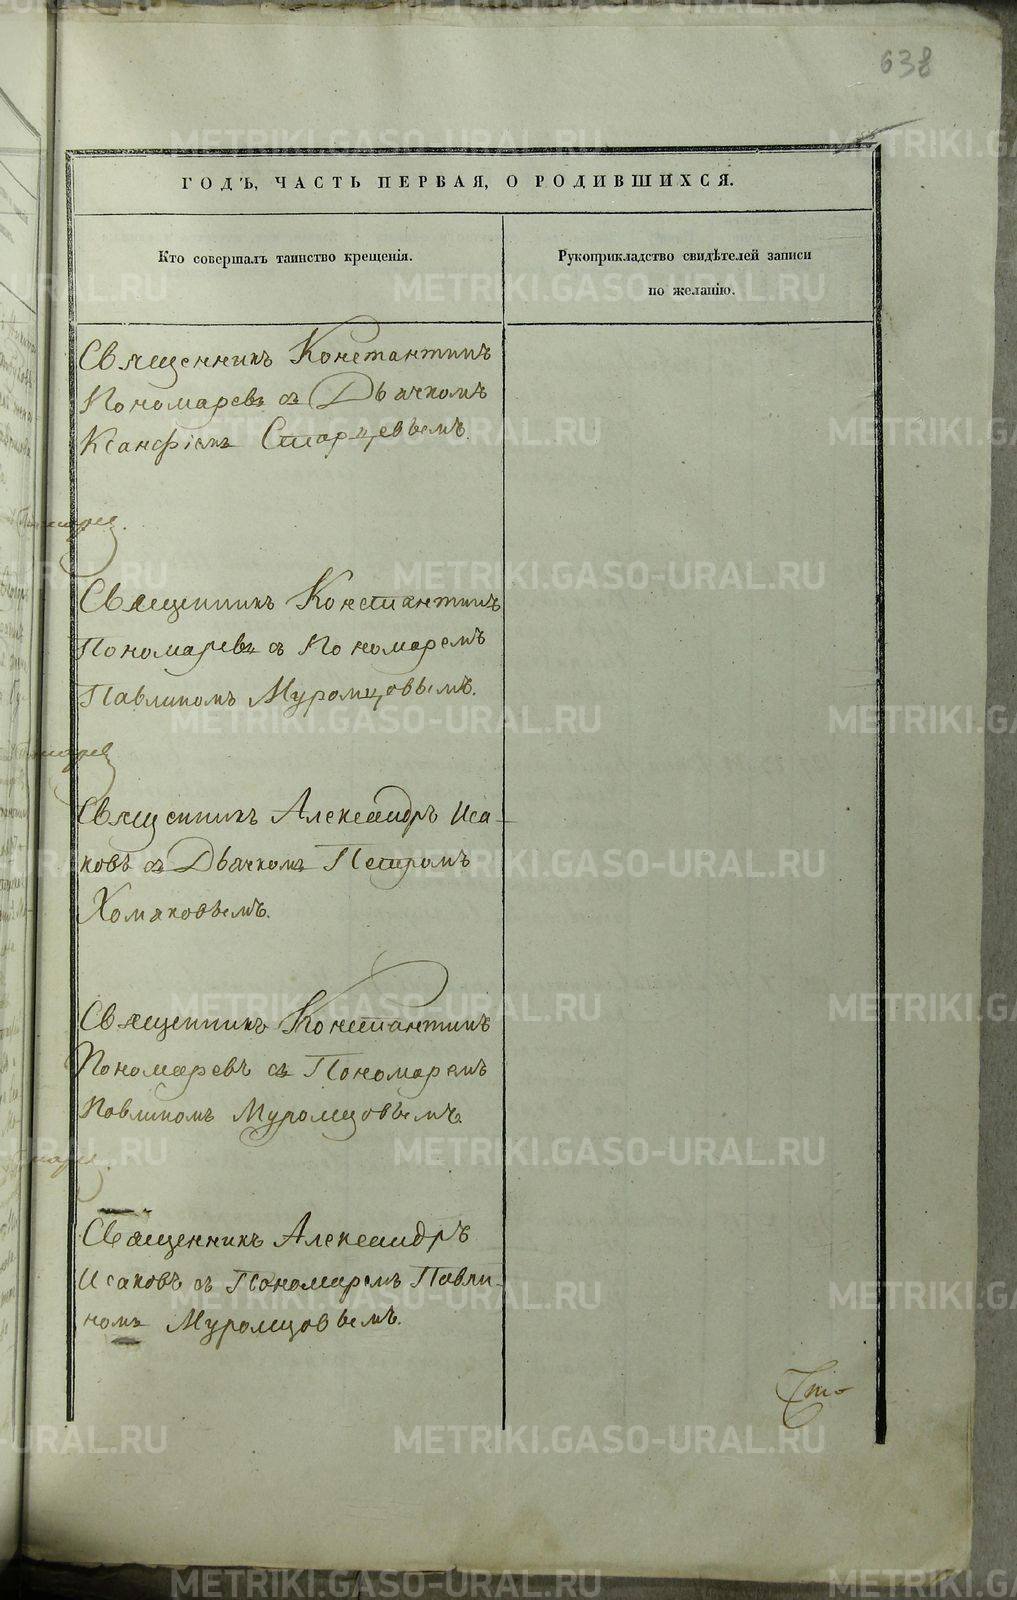 638
ГОДЪ, ЧАСТЬ ПЕРВАЯ, О РОДИВШИХСЯ.
Кто совершалъ таинство крещенія.
Рукоприкладство свидѣтелей записи
по желанію.
Священникъ Константинъ
Пономаревъ съ Дьячкомъ
Ксанфіемъ Старцевымъ.
Священникъ Константинъ
Пономаревъ съ Пономаремъ
Павлиномъ Муромцовымъ.
Священникъ Александръ Иса-
ковъ съ Дьячкомъ Петромъ
Хомяковымъ.
Священникъ Константинъ
Пономаревъ съ Пономаремъ
Павлиномъ Муромцовымъ.
Священникъ Александръ
Исаковъ съ Пономаремъ Павли-
номъ Муромцовымъ.
METRIKI.GASO-URAL.RU